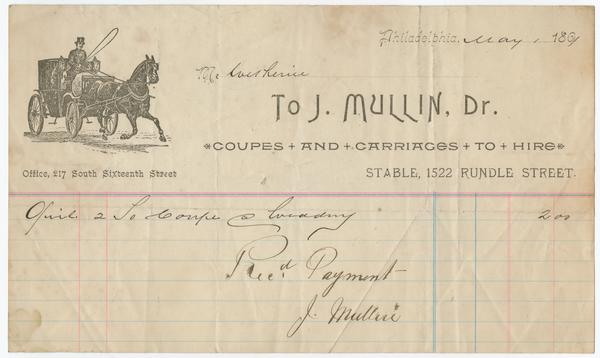 Philadelphia, May 1 1891
M
To J. MULLIN, Dr.
COUPES + AND + CARRIAGES + TO + HIRE
Office, 217 South Sixteenth Street
STABLE, 1522 RUNDLE STREET.
April 2 To Coupe 2 00
Rec'd Payment
J. Mullin